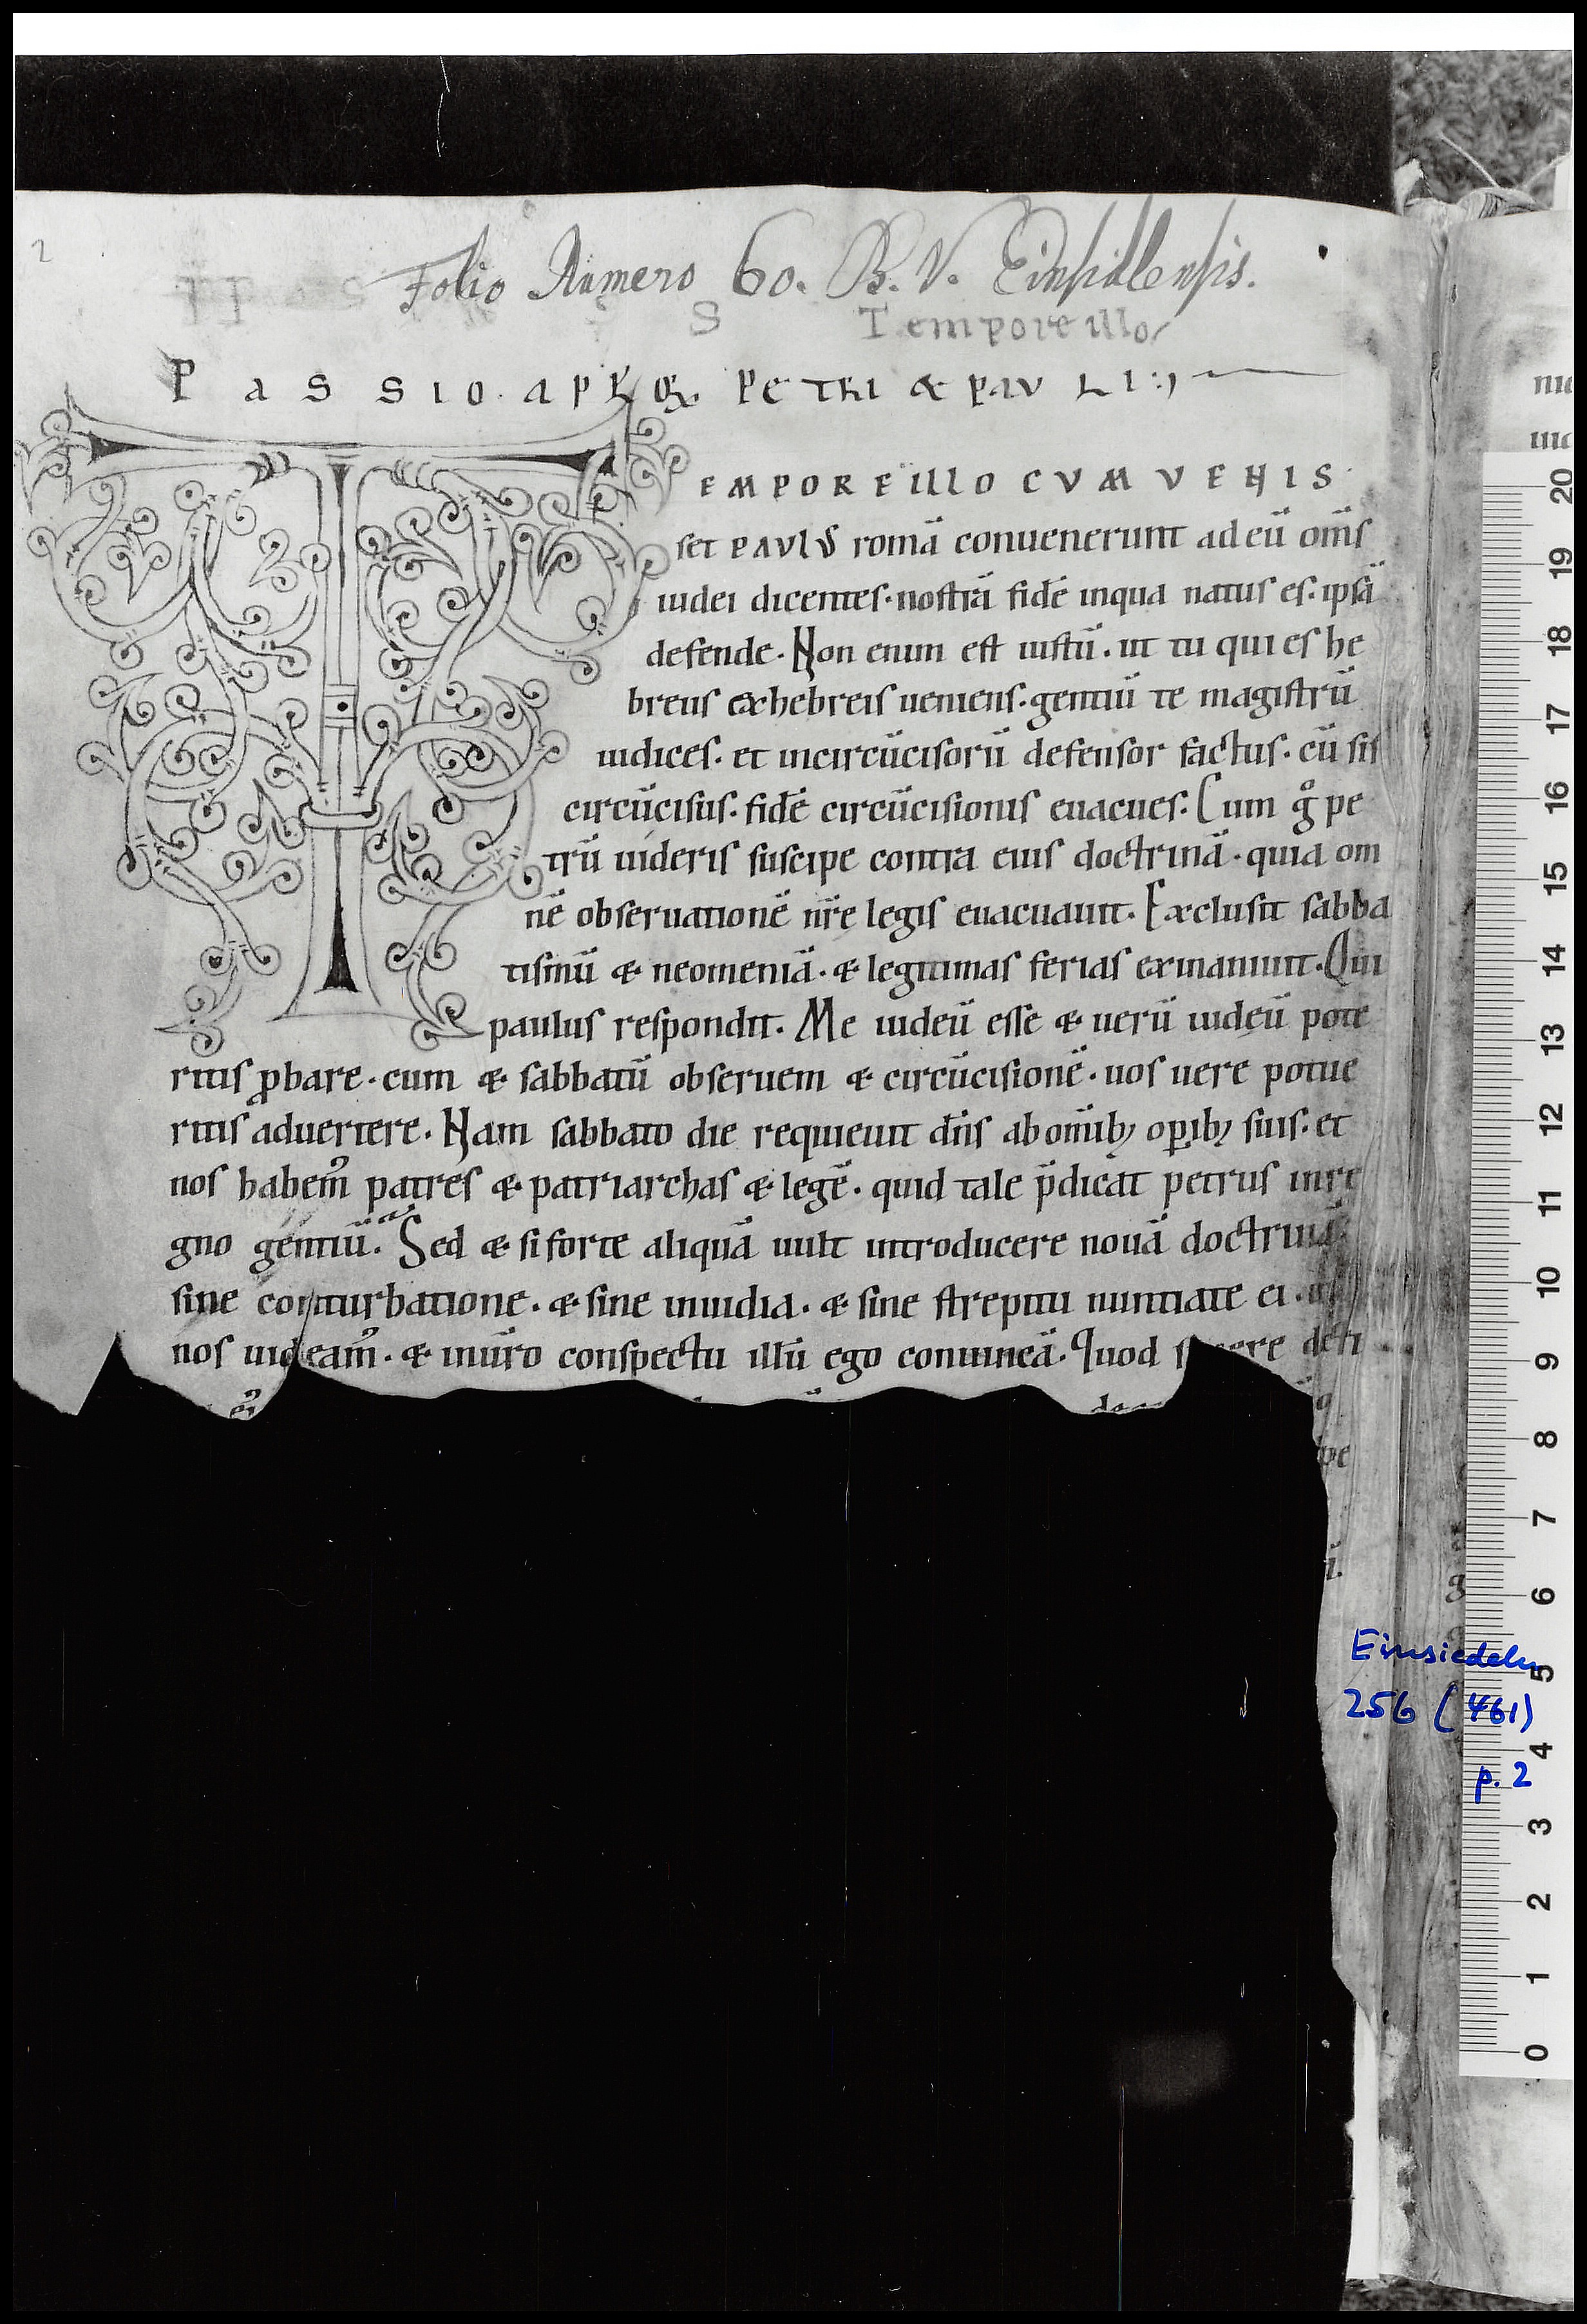 2
Folio Numero 60. B. V. Einsidlensis.
S Tempore illo
PASSIO. APLꝜ PETRI & PAVLI:
TEMPORE ILLO CVM VENIS
set PAVLVS romā conuenerunt ad eū om̄s
iudei dicentes. nostrā fidē inqua natus es. ipsā
defende. Non enim est iustū. ut tu qui es he
breus exhebreis ueniens. gentiū te magistrū
iudices. et incircūcisorū defensor factus. cū sis
circūcisus. fidē circūcisionis euacues. Cum gͦ pe
trū uideris suscipe contra eius doctrinā. quia om
nē observationē nr̄ę legis euacuauit. Exclusit sabba
tismū & neomeniā. & legitimas ferias exinaniuit. Qui
paulus respondit. Me iudeū esse & uerū iudęū pote
ritis ꝓbare. cum & sabbatū obseruem & circūcisionē. uos uere potue
ritis aduertere. Nam sabbato die requieuit dn̄s ab om̄ib; oꝑib; suis. et
nos habemꝰ patres & patriarchas & legē. quid tale p̄dicat petrus inre
gno gentiū. Sed & si forte aliquā uult introducere nouā doctrinā.
sine conturbatione. & sine inuidia. & sine strepitu nuntiate ei.
nos uideamꝰ. & inn̄ro conspectu illū ego conuincā. Quod
pe
nic
20
19
18
17
16
15
14
13
12
11
10
9
8
7
6
5
4
3
2
1
0
g
Einsiedeln
256 (461)
p. 2